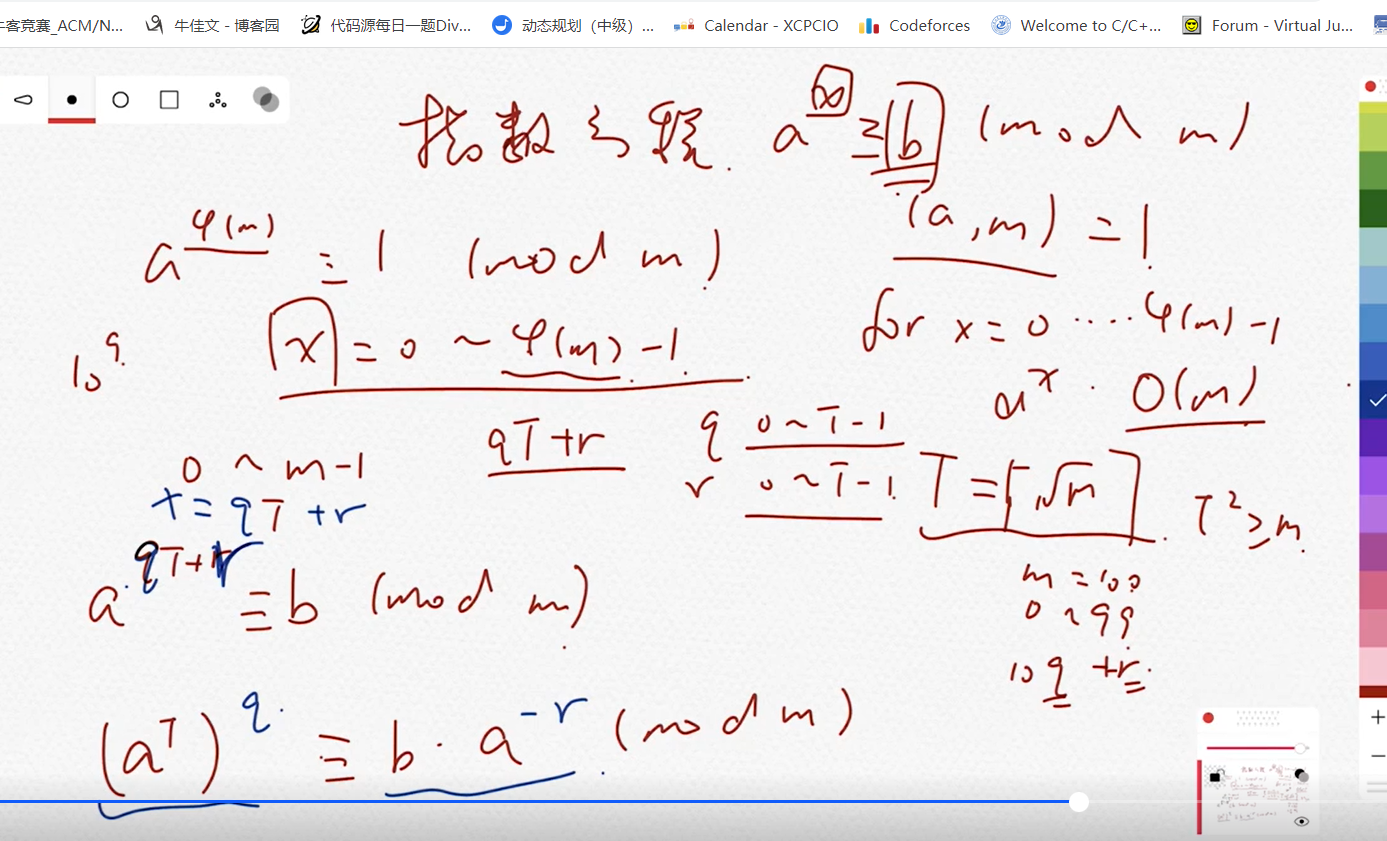 牛客竞赛_ACM/N... 牛佳文 - 博客园 代码源每日一题Div... 动态规划（中级）... Calendar - XCPCIO Codeforces Welcome to C/C+... Forum - Virtual Ju...
指数与 a^x ≡ b (mod m)
(a, m) = 1
a^φ(m) ≡ 1 (mod m)
for x = 0 ···· φ(m) - 1
10^9
x = 0 ~ φ(m) - 1
a^x · O(m)
qT + r
q 0 ~ T - 1
r 0 ~ T - 1
T = ⌈√m⌉ . T² ≥ m
0 ~ m - 1
x = qT + r
a^(qT+r) ≡ b (mod m)
m = 100
0 ~ 99
10q + r
(a^T)^q ≡ b · a^(-r) (mod m)